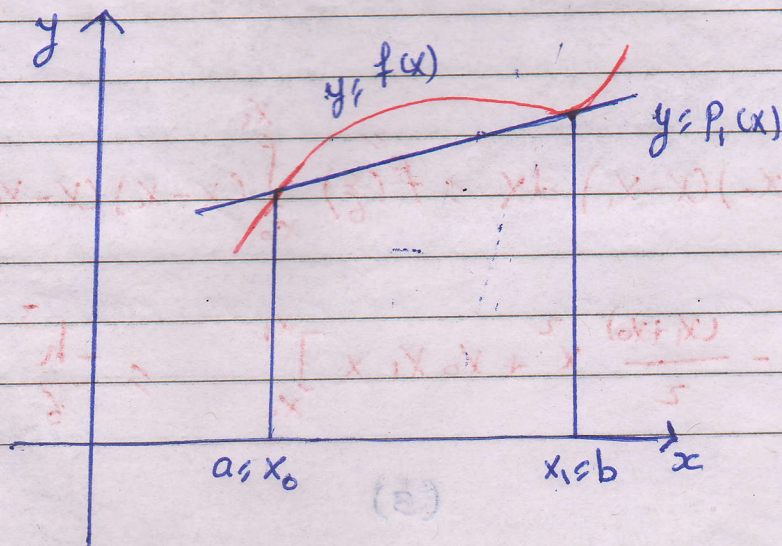 y
y = f(x)
y = P₁(x)
a = x₀
x₁ = b
x